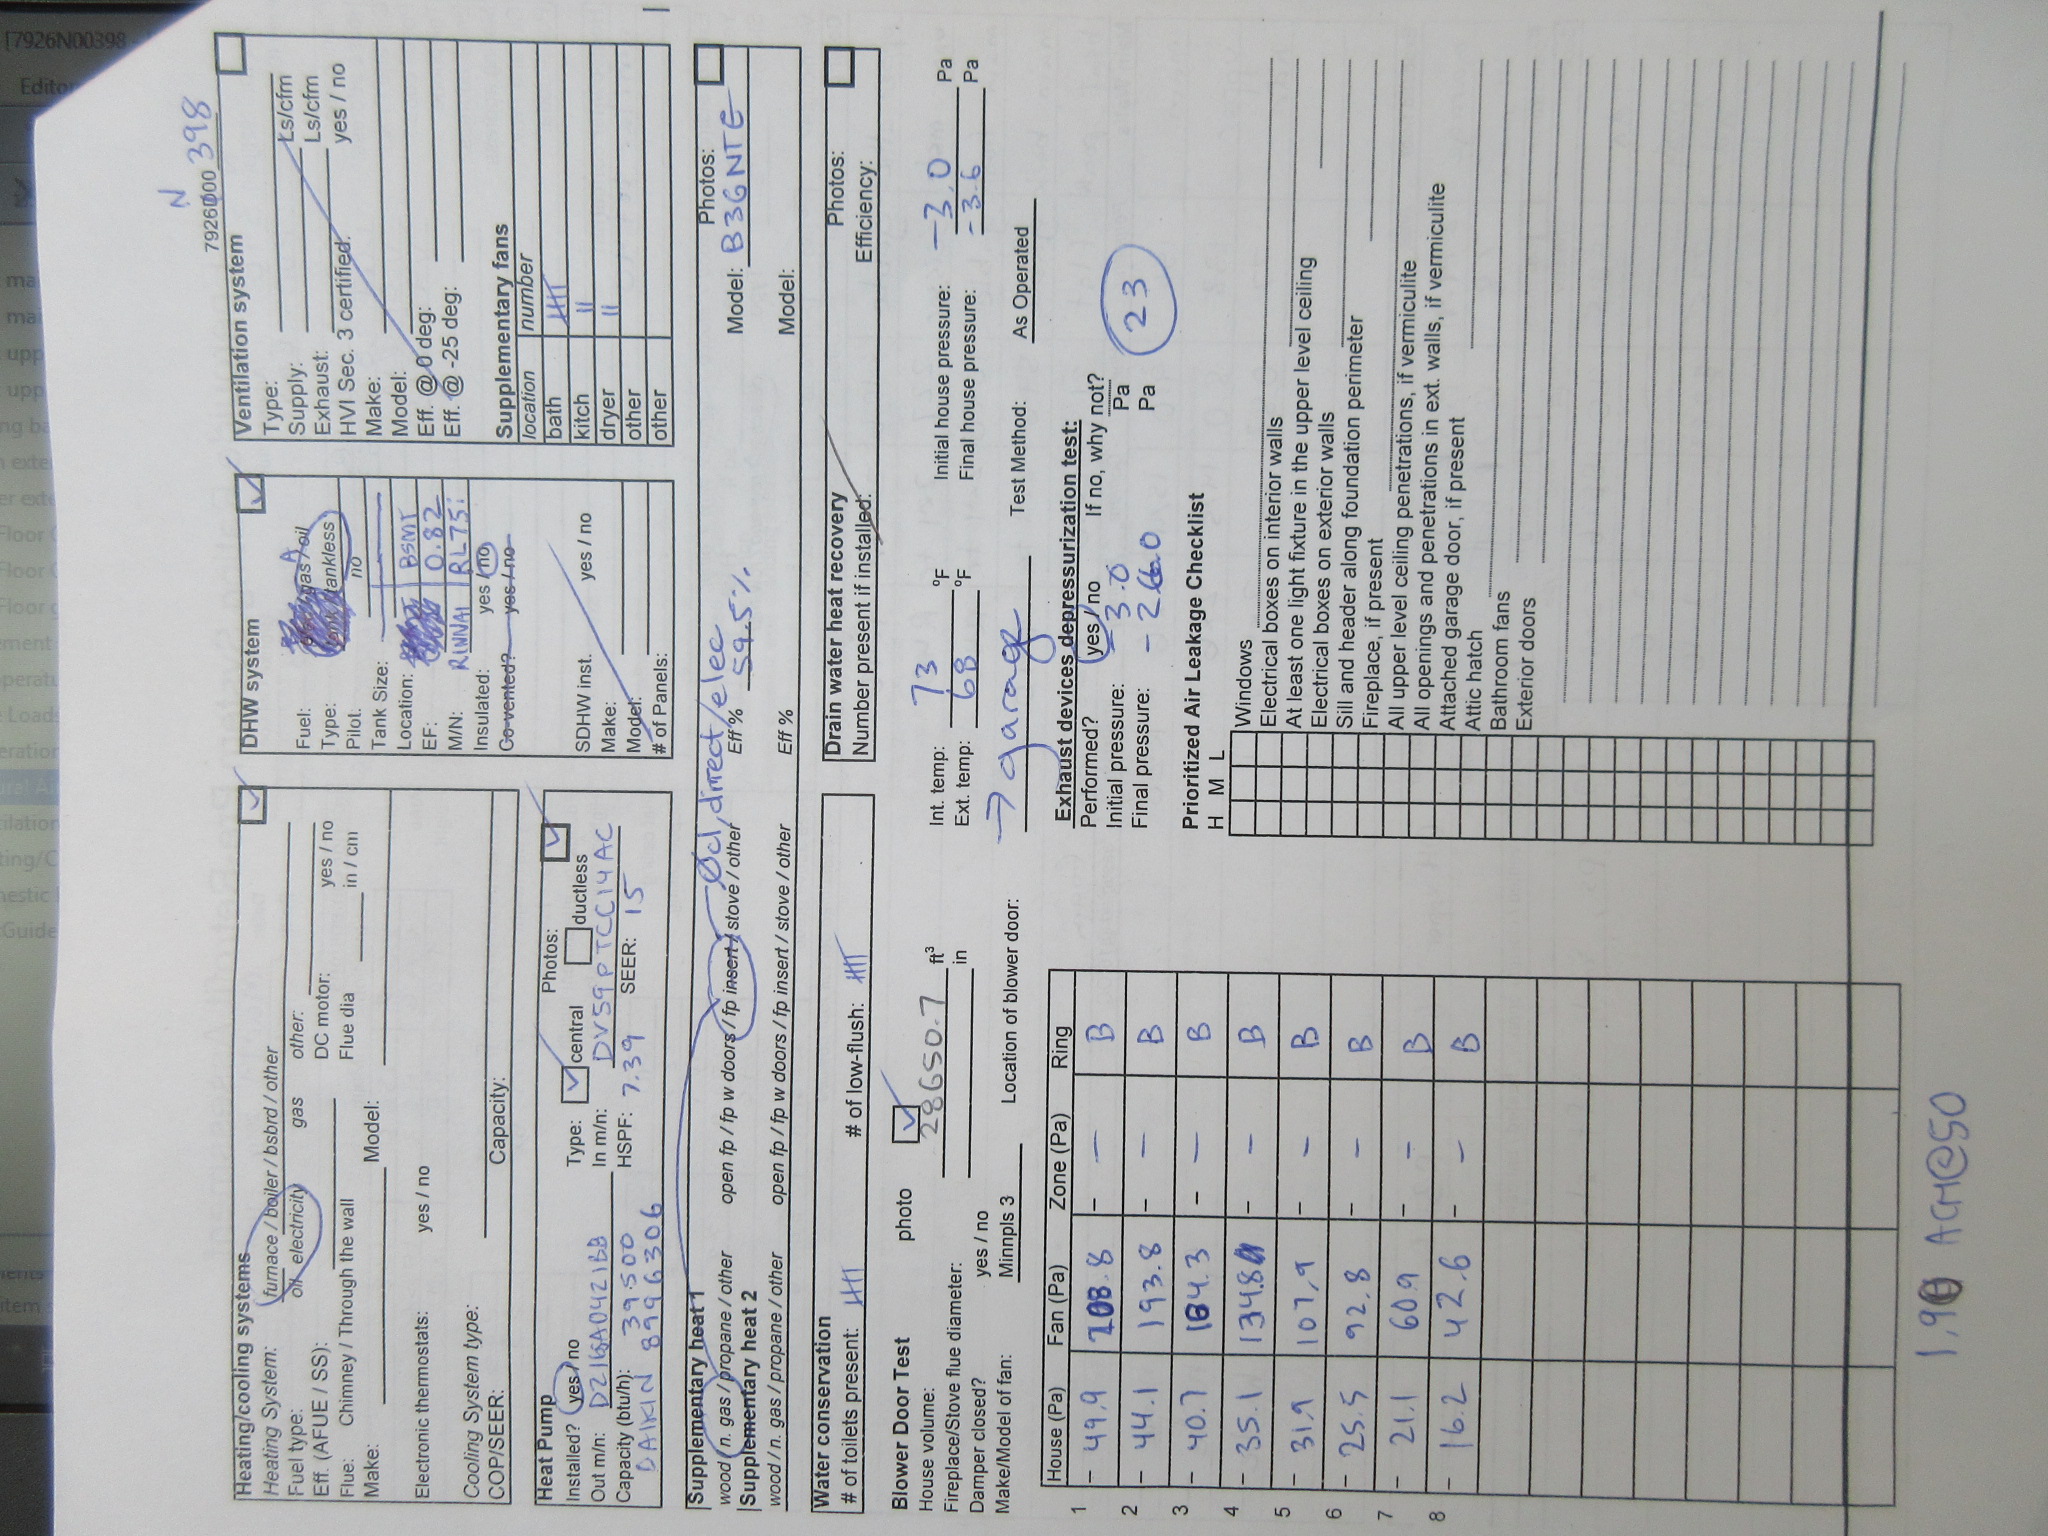 [7926N00398
Editor
N
7926D000 398
Heating/cooling systems
Heating System: furnace / boiler / bsbrd / other
Fuel type: oil electricity gas other:
Eff. (AFUE / SS): DC motor: yes / no
Flue: Chimney / Through the wall Flue dia in / cm
Make: Model:
Electronic thermostats: yes / no
Cooling System type:
COP/SEER: Capacity:
DHW system
Fuel: gas / oil
Type: tankless
Pilot. no
Tank Size:
Location: BSMT
EF: 0.82
M/N: RINNAI RL75i
Insulated: yes / no
Co-vented? yes / no
SDHW inst. yes / no
Make:
Model:
# of Panels:
Ventilation system
Type:
Supply: Ls/cfm
Exhaust: Ls/cfm
HVI Sec. 3 certified. yes / no
Make:
Model:
Eff. @ 0 deg:
Eff. @ -25 deg:
Supplementary fans
location number
bath
kitch II
dryer II
other
other
Heat Pump Photos:
Installed? yes / no Type: central ductless
Out m/n: DZ16SA0421BB In m/n: DV59PTCC14AC
Capacity (btu/h): 39500 HSPF: 7.39 SEER: 15
DAIKIN 8996306
Supplementary heat 1 Ocl, direct/elec Photos:
wood / n. gas / propane / other open fp / fp w doors / fp insert / stove / other Eff % 59.5% Model: B36NTE
Supplementary heat 2
wood / n. gas / propane / other open fp / fp w doors / fp insert / stove / other Eff % Model:
Water conservation
# of toilets present: # of low-flush:
Drain water heat recovery Photos:
Number present if installed: Efficiency:
Blower Door Test photo
House volume: 28650.7 ft³
Fireplace/Stove flue diameter: in
Damper closed? yes / no
Make/Model of fan: Minnpls 3 Location of blower door: → garage
Int. temp: 73 °F Initial house pressure: -3.0 Pa
Ext. temp: 68 °F Final house pressure: -3.6 Pa
Test Method: As Operated
House (Pa) Fan (Pa) Zone (Pa) Ring
1 - 49.9 208.8 - - B
2 - 44.1 193.8 - - B
3 - 40.7 164.3 - - B
4 - 35.1 134.8 - - B
5 - 31.9 107.9 - - B
6 - 25.5 92.8 - - B
7 - 21.1 60.9 - - B
8 - 16.2 42.6 - - B
Exhaust devices depressurization test:
Performed? yes / no If no, why not?
Initial pressure: -3.0 Pa
Final pressure: -26.0 Pa
23
Prioritized Air Leakage Checklist
H M L
Windows
Electrical boxes on interior walls
At least one light fixture in the upper level ceiling
Electrical boxes on exterior walls
Sill and header along foundation perimeter
Fireplace, if present
All upper level ceiling penetrations, if vermiculite
All openings and penetrations in ext. walls, if vermiculite
Attached garage door, if present
Attic hatch
Bathroom fans
Exterior doors
ACH@50